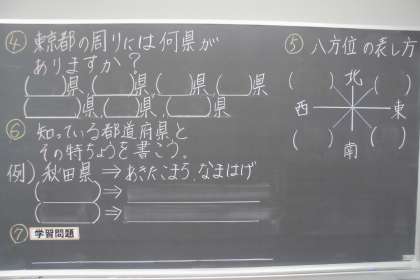 ④ 東京都の周りには何県が
ありますか？
( )県,( )県,( )県,( )県
( )県,( )県,( )県
⑤ 八方位の表し方
( ) 北 ( )
西 東
( ) 南 ( )
⑥ 知っている都道府県と
その特ちょうを書こう。
例) 秋田県 → あきたこまち,なまはげ
( ) →
( ) →
⑦ 学習問題